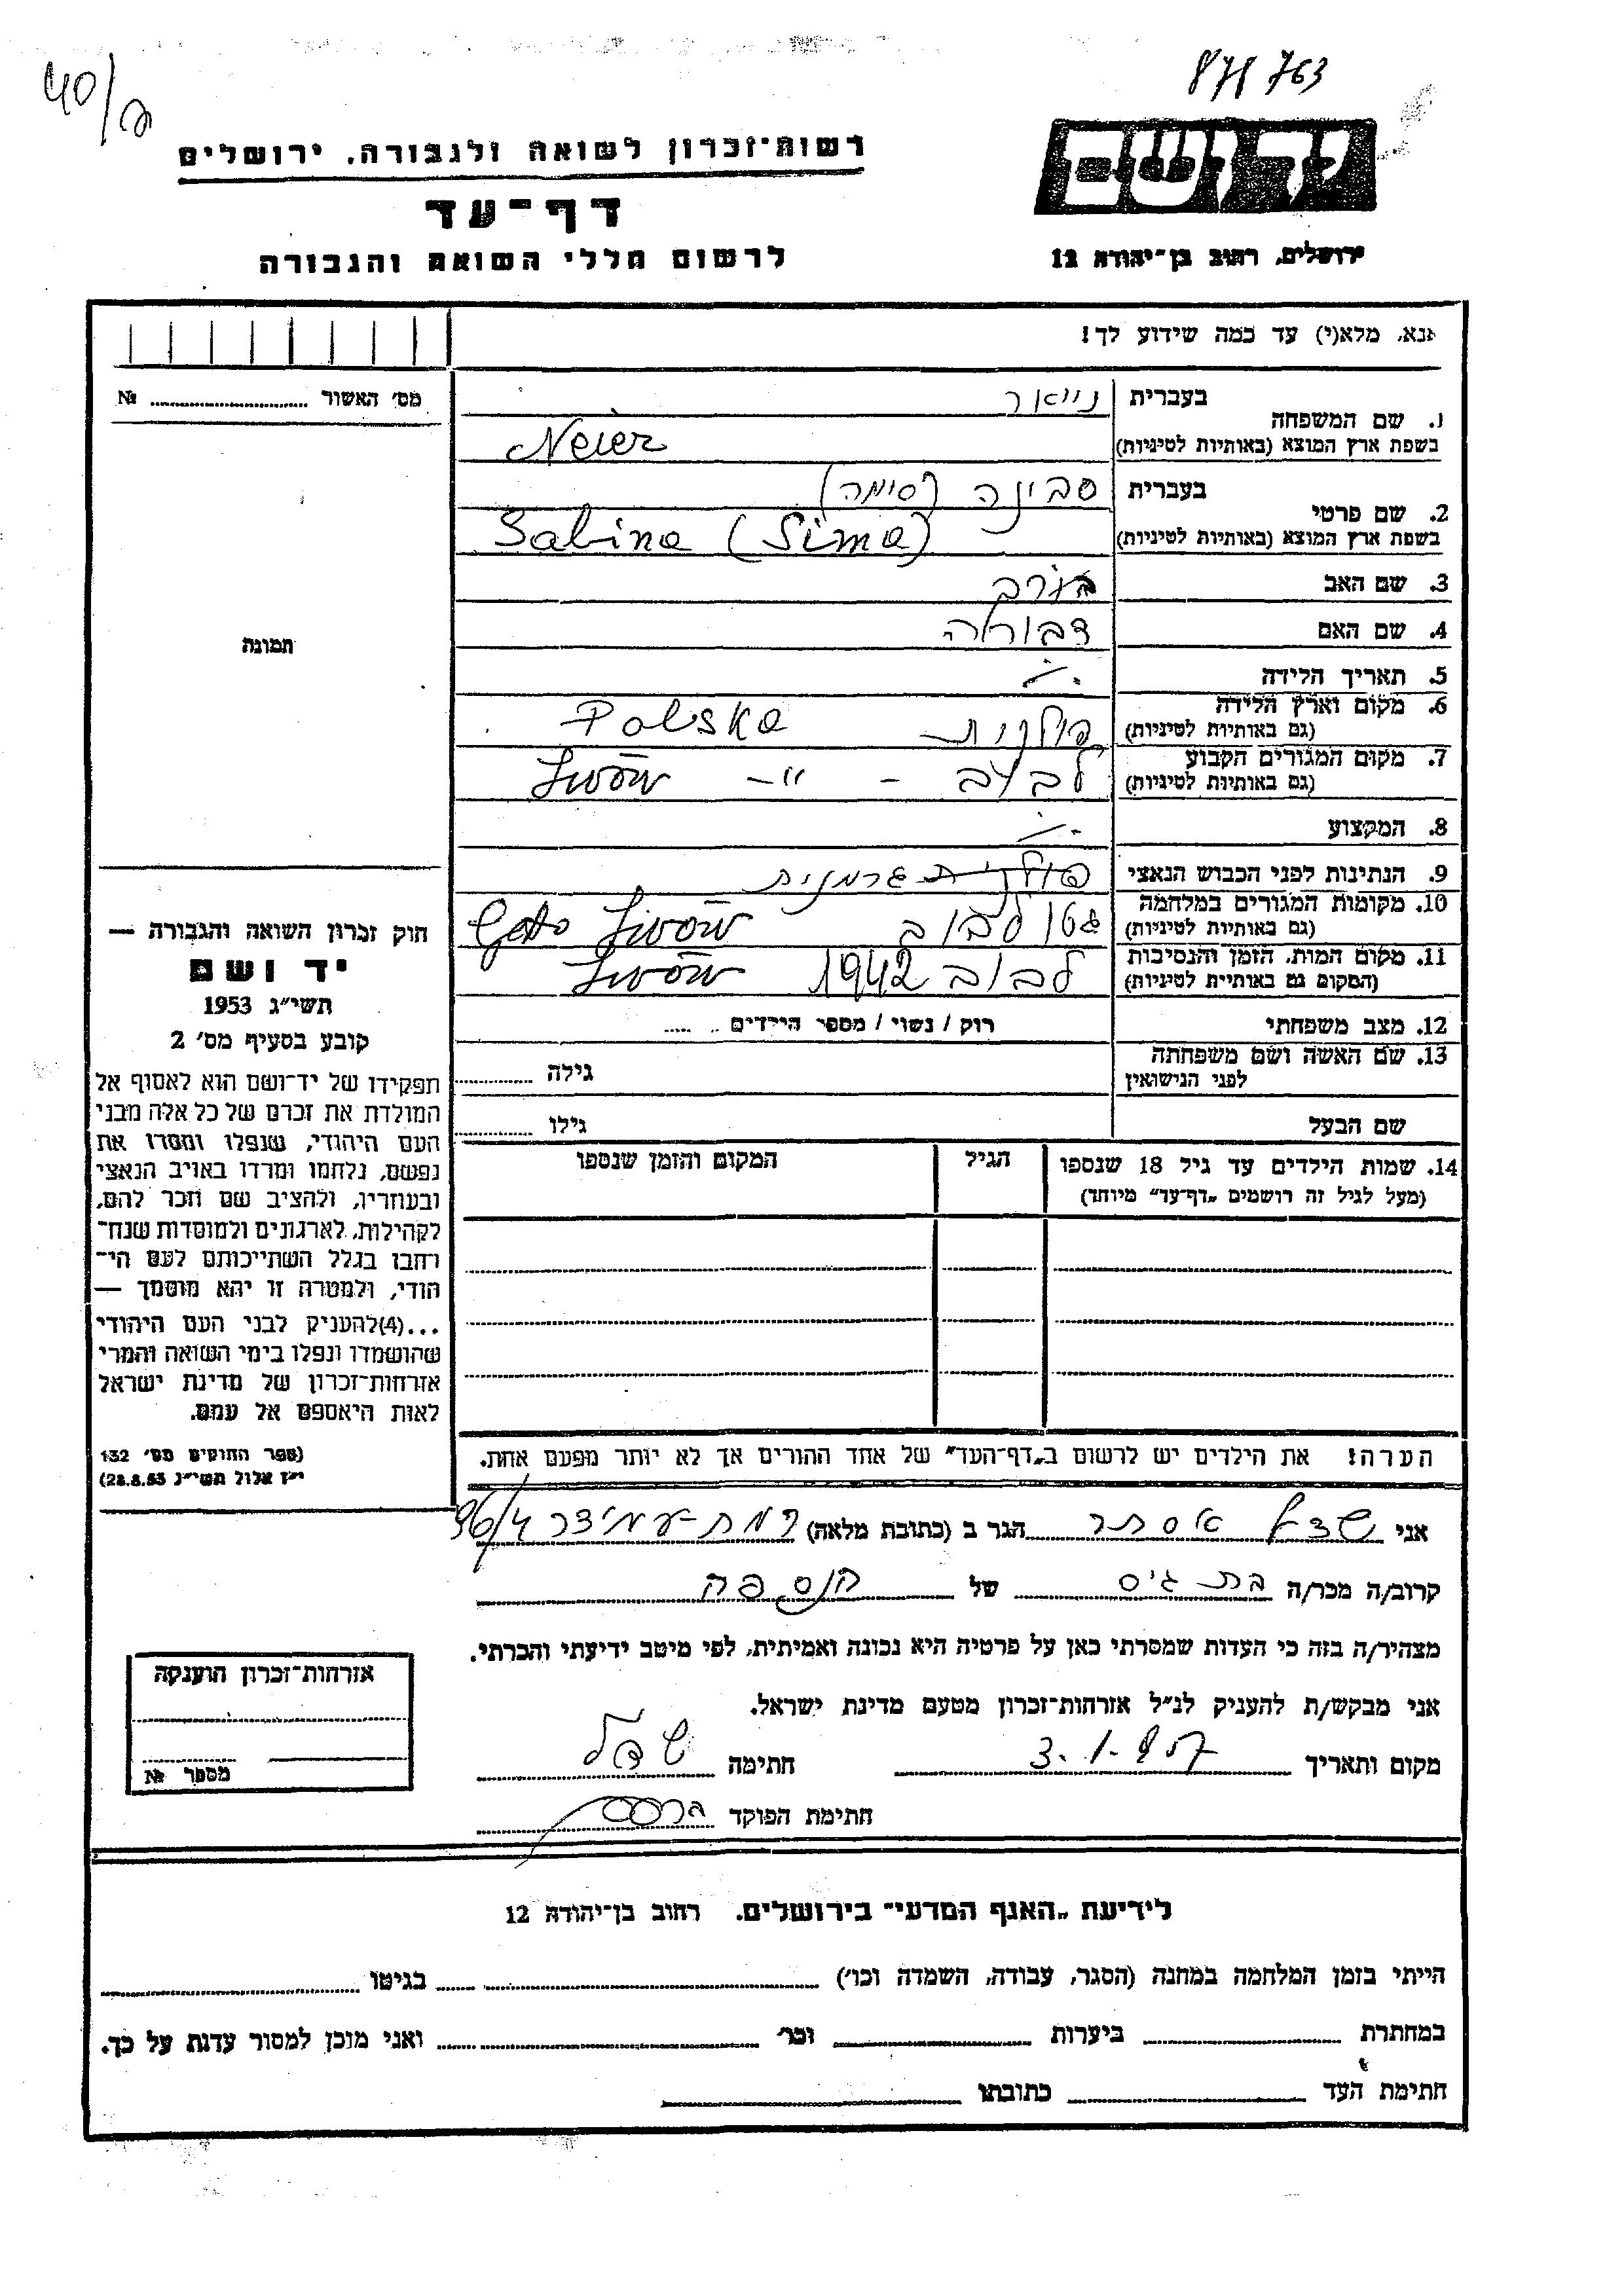 40/
871763
רשות־זכרון לשואה ולגבורה, ירושלים
יד ושם
דף־עד
לרשום חללי השואה והגבורה
ירושלים, רחוב בן־יהודה 12
אנא, מלא(י) עד כמה שידוע לך!
מס׳ האשור № 
1. שם המשפחה
בעברית נייאר
בשפת ארץ המוצא (באותיות לטיניות) Neier
2. שם פרטי
בעברית סבינה (סימה)
בשפת ארץ המוצא (באותיות לטיניות) Sabina (Sima)
3. שם האב
4. שם האם דבורה
5. תאריך הלידה ./.
6. מקום וארץ הלידה
(גם באותיות לטיניות) פולנית Polska
7. מקום המגורים הקבוע
(גם באותיות לטיניות) לבוב - " - Lwów
8. המקצוע ./.
9. הנתינות לפני הכבוש הנאצי גרמנית
10. מקומות המגורים במלחמה
(גם באותיות לטיניות) גטו לבוב Geto Lwów
11. מקום המות, הזמן והנסיבות
(המקום גם באותיות לטיניות) לבוב 1942 Lwów
12. מצב משפחתי רוק / נשוי / מספר הילדים
13. שם האשה ושם משפחתה
לפני הנישואין גילה
שם הבעל גילו
14. שמות הילדים עד גיל 18 שנספו הגיל המקום והזמן שנספו
(מעל לגיל זה רושמים „דף־עד״ מיוחד)
הערה! את הילדים יש לרשום ב„דף־העד״ של אחד ההורים אך לא יותר מפעם אחת.
תמונה
חוק זכרון השואה והגבורה —
יד ושם
תשי״ג 1953
קובע בסעיף מס׳ 2
תפקידו של יד־ושם הוא לאסוף אל
המולדת את זכרם של כל אלה מבני
העם היהודי, שנפלו ומסרו את
נפשם, נלחמו ומרדו באויב הנאצי
ובעוזריו, ולהציב שם וזכר להם,
לקהילות, לארגונים ולמוסדות שנח־
רחבו בגלל השתייכותם לעם הי־
הודי, ולמטרה זו יהא מוסמך —
...(4)להעניק לבני העם היהודי
שהושמדו ונפלו בימי השואה והמרי
אזרחות־זכרון של מדינת ישראל
לאות היאספם אל עמם.
(ספר החוקים מס׳ 132
י״ז אלול תשי״ג 28.8.53)
אני אסתר הגר ב (כתובת מלאה) רמת-עמידר 96/4
קרוב/ה מכר/ה בת גיס של הנספה
מצהיר/ה בזה כי העדות שמסרתי כאן על פרטיה היא נכונה ואמיתית, לפי מיטב ידיעתי והכרתי.
אני מבקש/ת להעניק לנ״ל אזרחות־זכרון מטעם מדינת ישראל.
מקום ותאריך 3.1.957 חתימה
חתימת הפוקד
אזרחות־זכרון הוענקה
מספר №
לידיעת „האגף המדעי״ בירושלים, רחוב בן־יהודה 12
הייתי בזמן המלחמה במחנה (הסגר, עבודה, השמדה וכו׳) בגיטו
במחתרת ביערות וכו׳ ואני מוכן למסור עדות על כך.
חתימת העד כתובתו